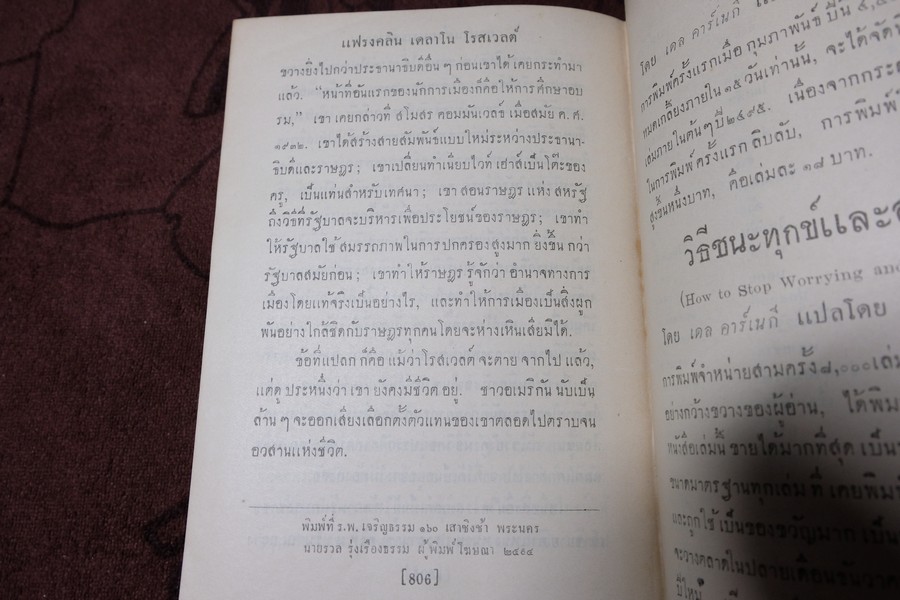 แฟรงคลิน เดลาโน โรสเวลต์
ขวางยิ่งไปกว่าประธานาธิบดีอื่น ๆ ก่อนเขาได้ เคยกระทำมา
แล้ว. “หน้าที่อันแรกของนักการเมืองก็คือให้การศึกษาอบ
รม,” เขา เคยกล่าวที่ สโมสร คอมมันเวลธ์ เมื่อสมัย ค.ศ.
๑๙๓๒. เขาได้สร้างสายสัมพันธ์แบบใหม่ระหว่างประธานา-
ธิบดีและราษฎร; เขาเปลี่ยนทำเนียบไวท์ เฮาส์เป็นโต๊ะของ
ครู, เป็นแท่นสำหรับเทศนา; เขา สอนราษฎร แห่ง สหรัฐ
ถึงวิธีที่รัฐบาลจะบริหารเพื่อประโยชน์ของราษฎร; เขาทำ
ให้รัฐบาลใช้ สมรรถภาพในการ ปกครอง สูงมาก ยิ่งขึ้น กว่า
รัฐบาลสมัยก่อน; เขาทำให้ราษฎร รู้จักว่า อำนาจทางการ
เมืองโดยแท้จริงเป็นอย่างไร, และทำให้การเมืองเป็นสิ่งผูก
พันอย่างใกล้ชิดกับราษฎรทุกคนโดยจะห่างเหินเสียมิได้.
ข้อที่แปลก ก็คือ แม้ว่าโรสเวลต์ จะตาย จากไป แล้ว,
แต่ดู ประหนึ่งว่า เขา ยังคงมีชีวิต อยู่. ชาวอเมริกัน นับเป็น
ล้าน ๆ จะออกเสียงเลือกตั้งตัวแทนของเขาตลอดไปตราบจน
อวสานแห่งชีวิต.
พิมพ์ที่ ร.พ. เจริญธรรม ๑๖๐ เสาชิงช้า พระนคร
นายรวล รุ่งเรืองธรรม ผู้พิมพ์โฆษณา ๒๔๙๔
[806]
โดย เดล คาร์เนกี
การพิมพ์ครั้งแรกเมื่อ กุมภาพันธ์
หมดเกลี้ยงภายใน ๑๕ วันเท่านั้น, จะได้จัดพิ
เล่มภายในต้นๆปี ๒๔๙๕. เนื่องจากกระ
ในการพิมพ์ ครั้งแรก ลิบลับ, การพิมพ์
สูงขึ้นหนึ่งบาท, คือเล่มละ ๑๘ บาท.
วิธีชนะทุกข์และ
(How to Stop Worrying and
โดย เดล คาร์เนกี แปลโดย
การพิมพ์จำหน่ายสามครั้ง ๗,๐๐๐ เล่ม
อย่างกว้างขวางของผู้อ่าน, ได้พิม
หนังสือเล่มนี้ ขายได้มากที่สุด เป็น
ขนาดมาตรฐานทุกเล่ม ที่ เคยพิม
และถูกใช้ เป็นของขวัญมาก เป็น
จะวางตลาดในปลายเดือนธันวาค
ปีใหม่